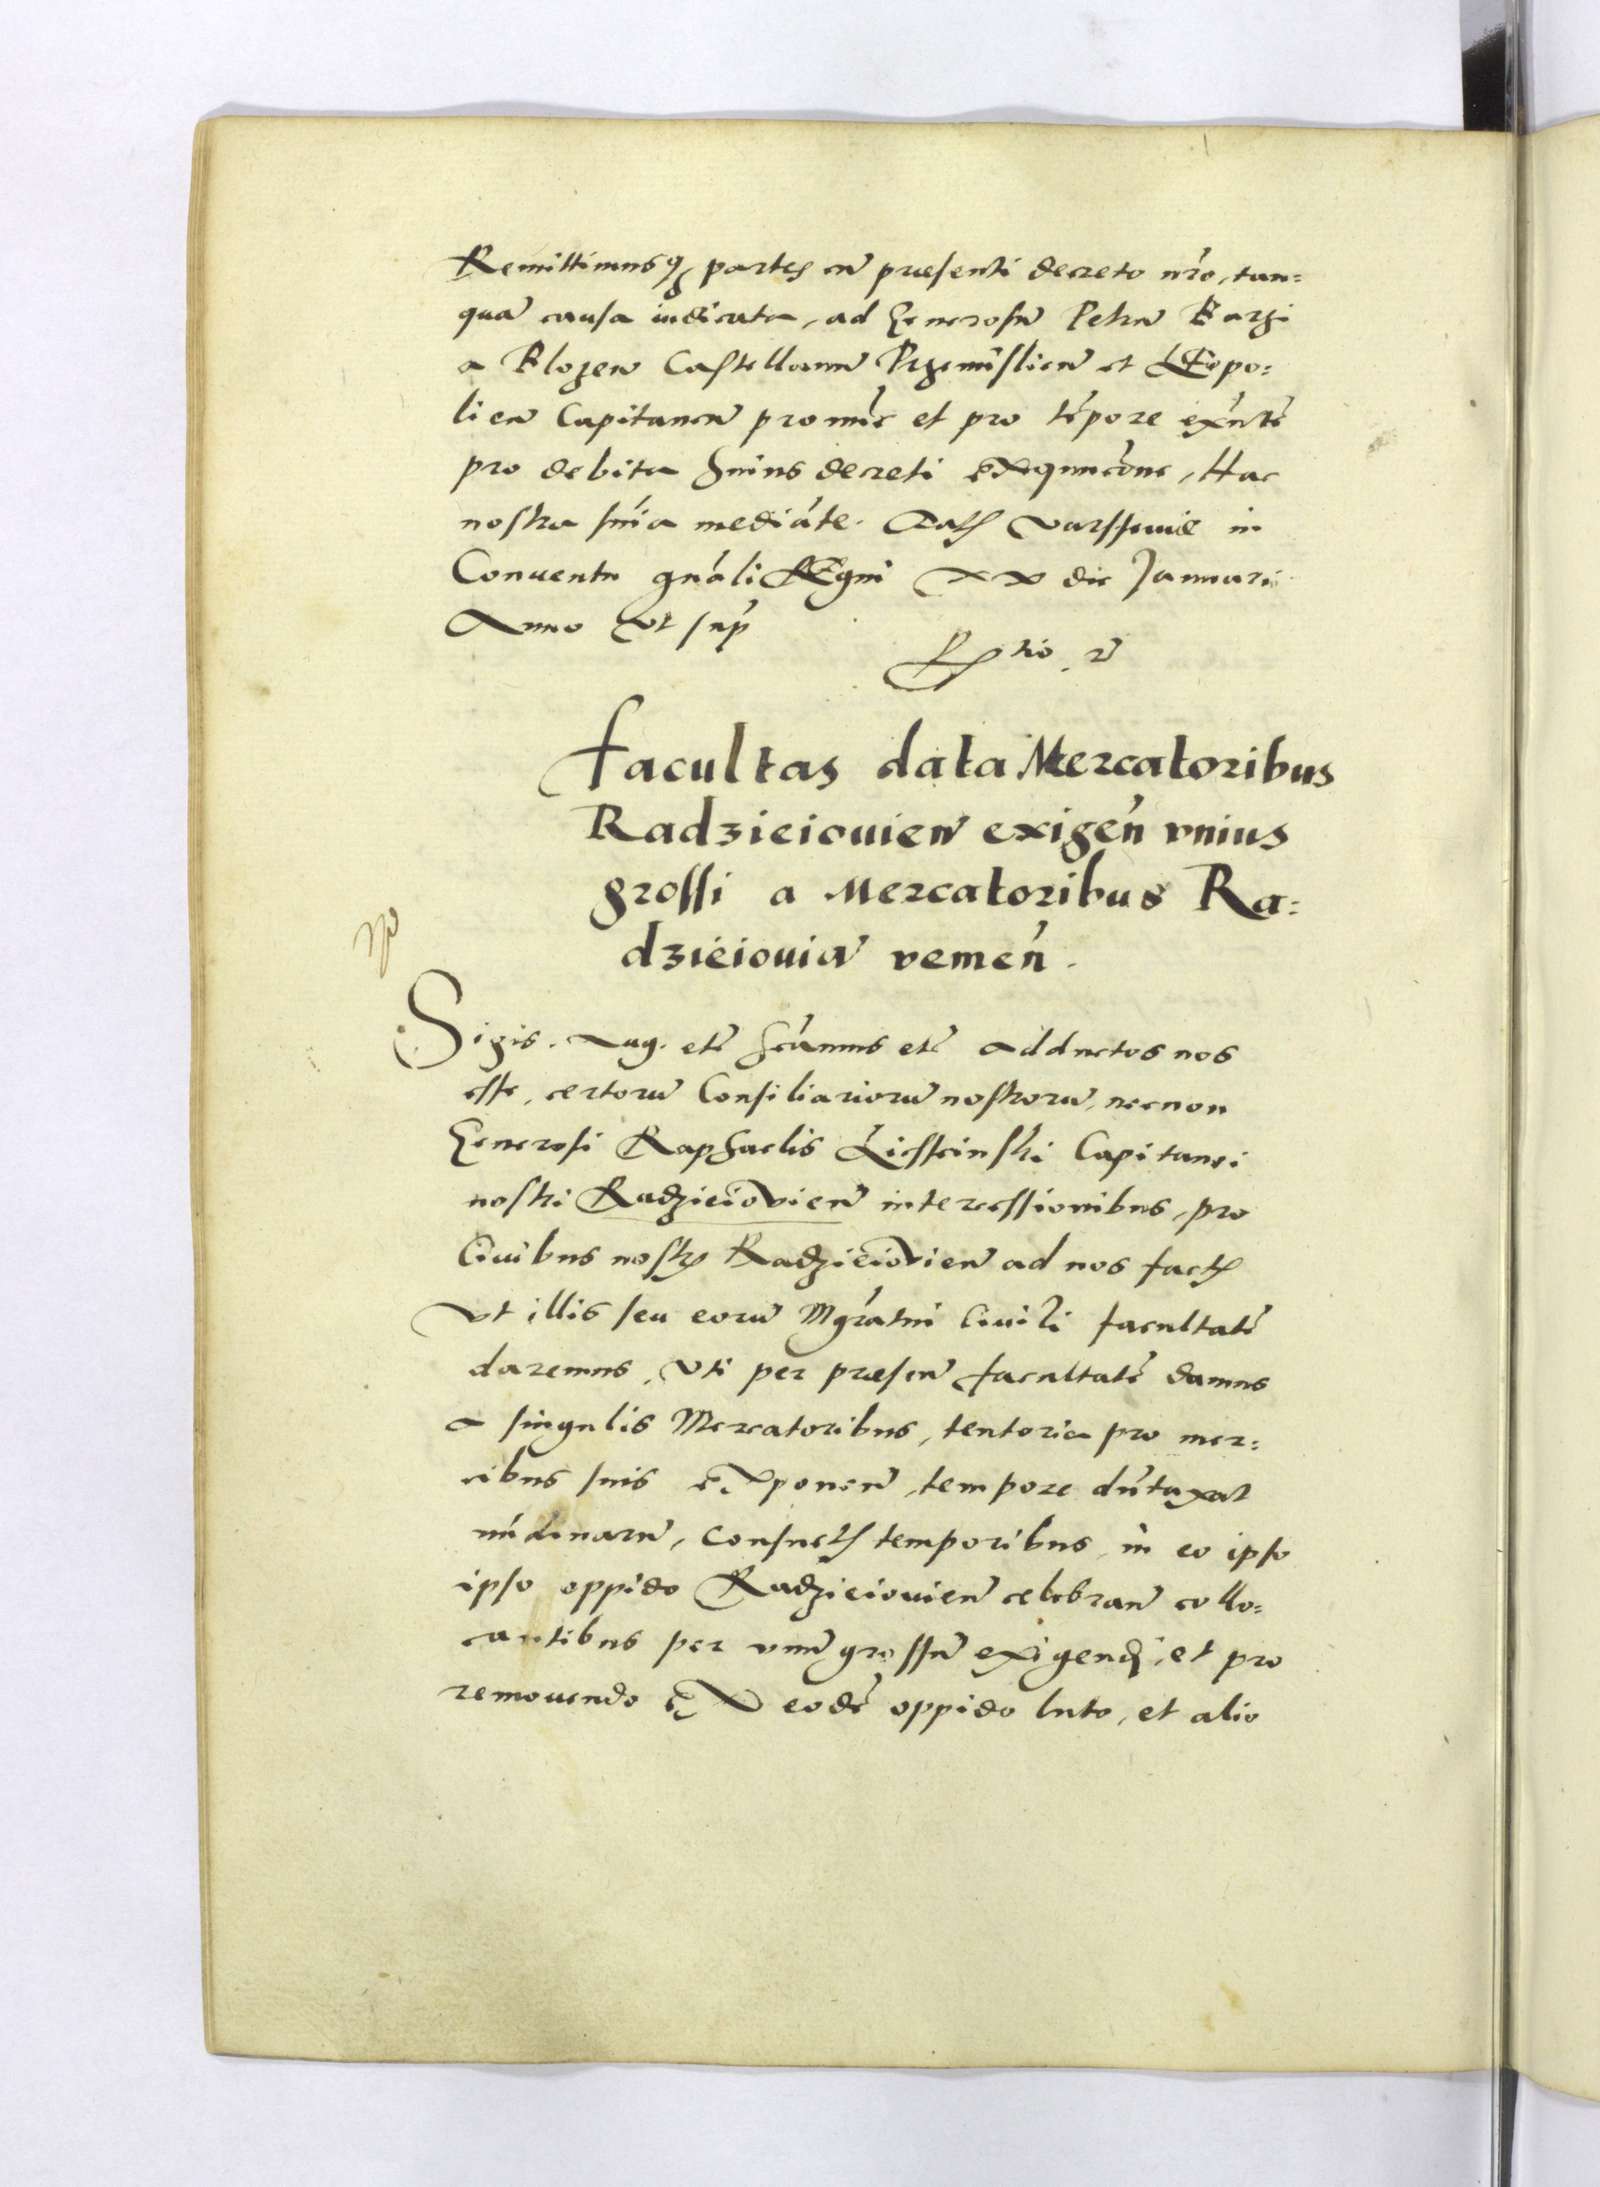 Remittimusq; partes cũ præsenti decreto nr̃o, tan=
quã causa iudicata, ad Generosũ Petrũ Barzi
a Blozew Castellanũ Przemislieñ et LEopo=
lieñ Capitaneũ pro nũc et pro tẽpore exñtẽ
pro debita huius decreti eXequucõne, Hac
nostra sñia mediãte. Dat Varssouiæ in
Conuentu gñali REgni XX die Januarii
Anno Vt sup̃
Facultas data Mercatoribus
Radzieiouieñ exigeñ vnius
grossi a Mercatoribus Ra=
dzieiouiã venieñ.
Sigis. Aug. etc̃ Scãmus etc̃ adductos nos
esse, certorũ Consiliariorũ nostrorũ, necnon
Generosi Raphaelis Liesseinski Capitanei
nostri RadzieioVieñ intercessionibus, pro
Ciuibus nostris RadzieioVieñ ad nos factis
Vt illis seu eorũ Mgrãtui Ciuili facultatẽ
daremus, Vti per præseñ facultatẽ damus
a singulis Mercatoribus, tentoria pro mer=
cibus suis eXponeñ, tempore dũtaxat
nũdinarũ, consuetis temporibus, in eo ipso
ipso oppido Radzieiouieñ celebrañ collo=
cantibus per vnũ grossũ exigendi, et pro
remouendo eX eodẽ oppido luto, et alio